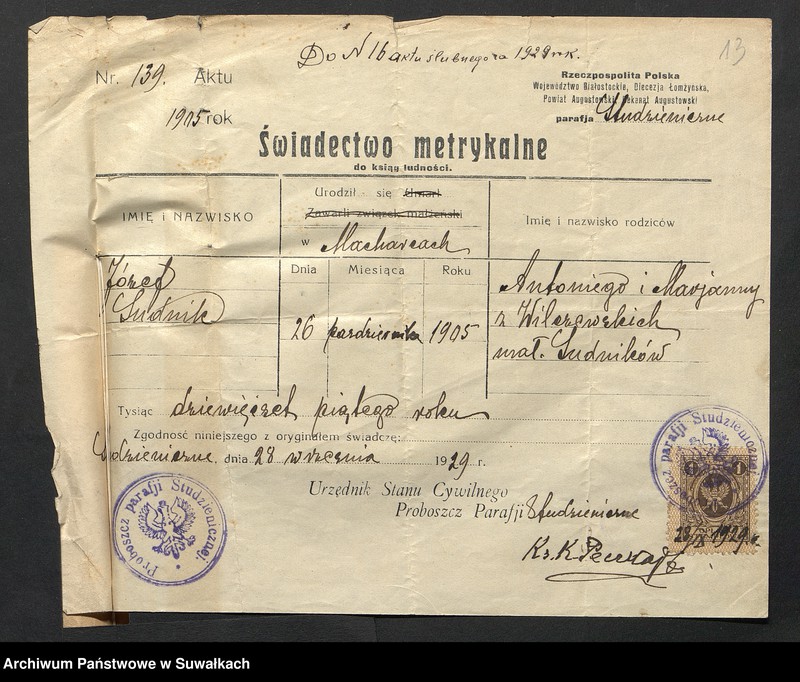 Do N 16 aktu ślubnego za 1929 rok.
13
Nr. 139. Aktu
1905 rok
Rzeczpospolita Polska
Województwo Białostockie, Diecezja Łomżyńska,
Powiat Augustowski, Dekanat Augustowski
parafja Studzieniczne
Świadectwo metrykalne
do ksiąg ludności.
IMIĘ I NAZWISKO
Urodził się Umarł
Zawarli związek małżeński
w Macharcach
Imię i nazwisko rodziców
Dnia Miesiąca Roku
Józef
Sudnik
26 października 1905
Antoniego i Marjanny
z Wilczewskich
mał. Sudników
Tysiąc dziewięćset piątego roku
Zgodność niniejszego z oryginałem świadczę:
Studzieniczne, dnia 28 września 1929 r.
Urzędnik Stanu Cywilnego
Proboszcz Parafji Studzieniczne
Ks. K.
Proboszcz parafji Studzienicznej
Proboszcz parafji Studzienicznej
1 1
28/IX 1929 r.
Archiwum Państwowe w Suwałkach